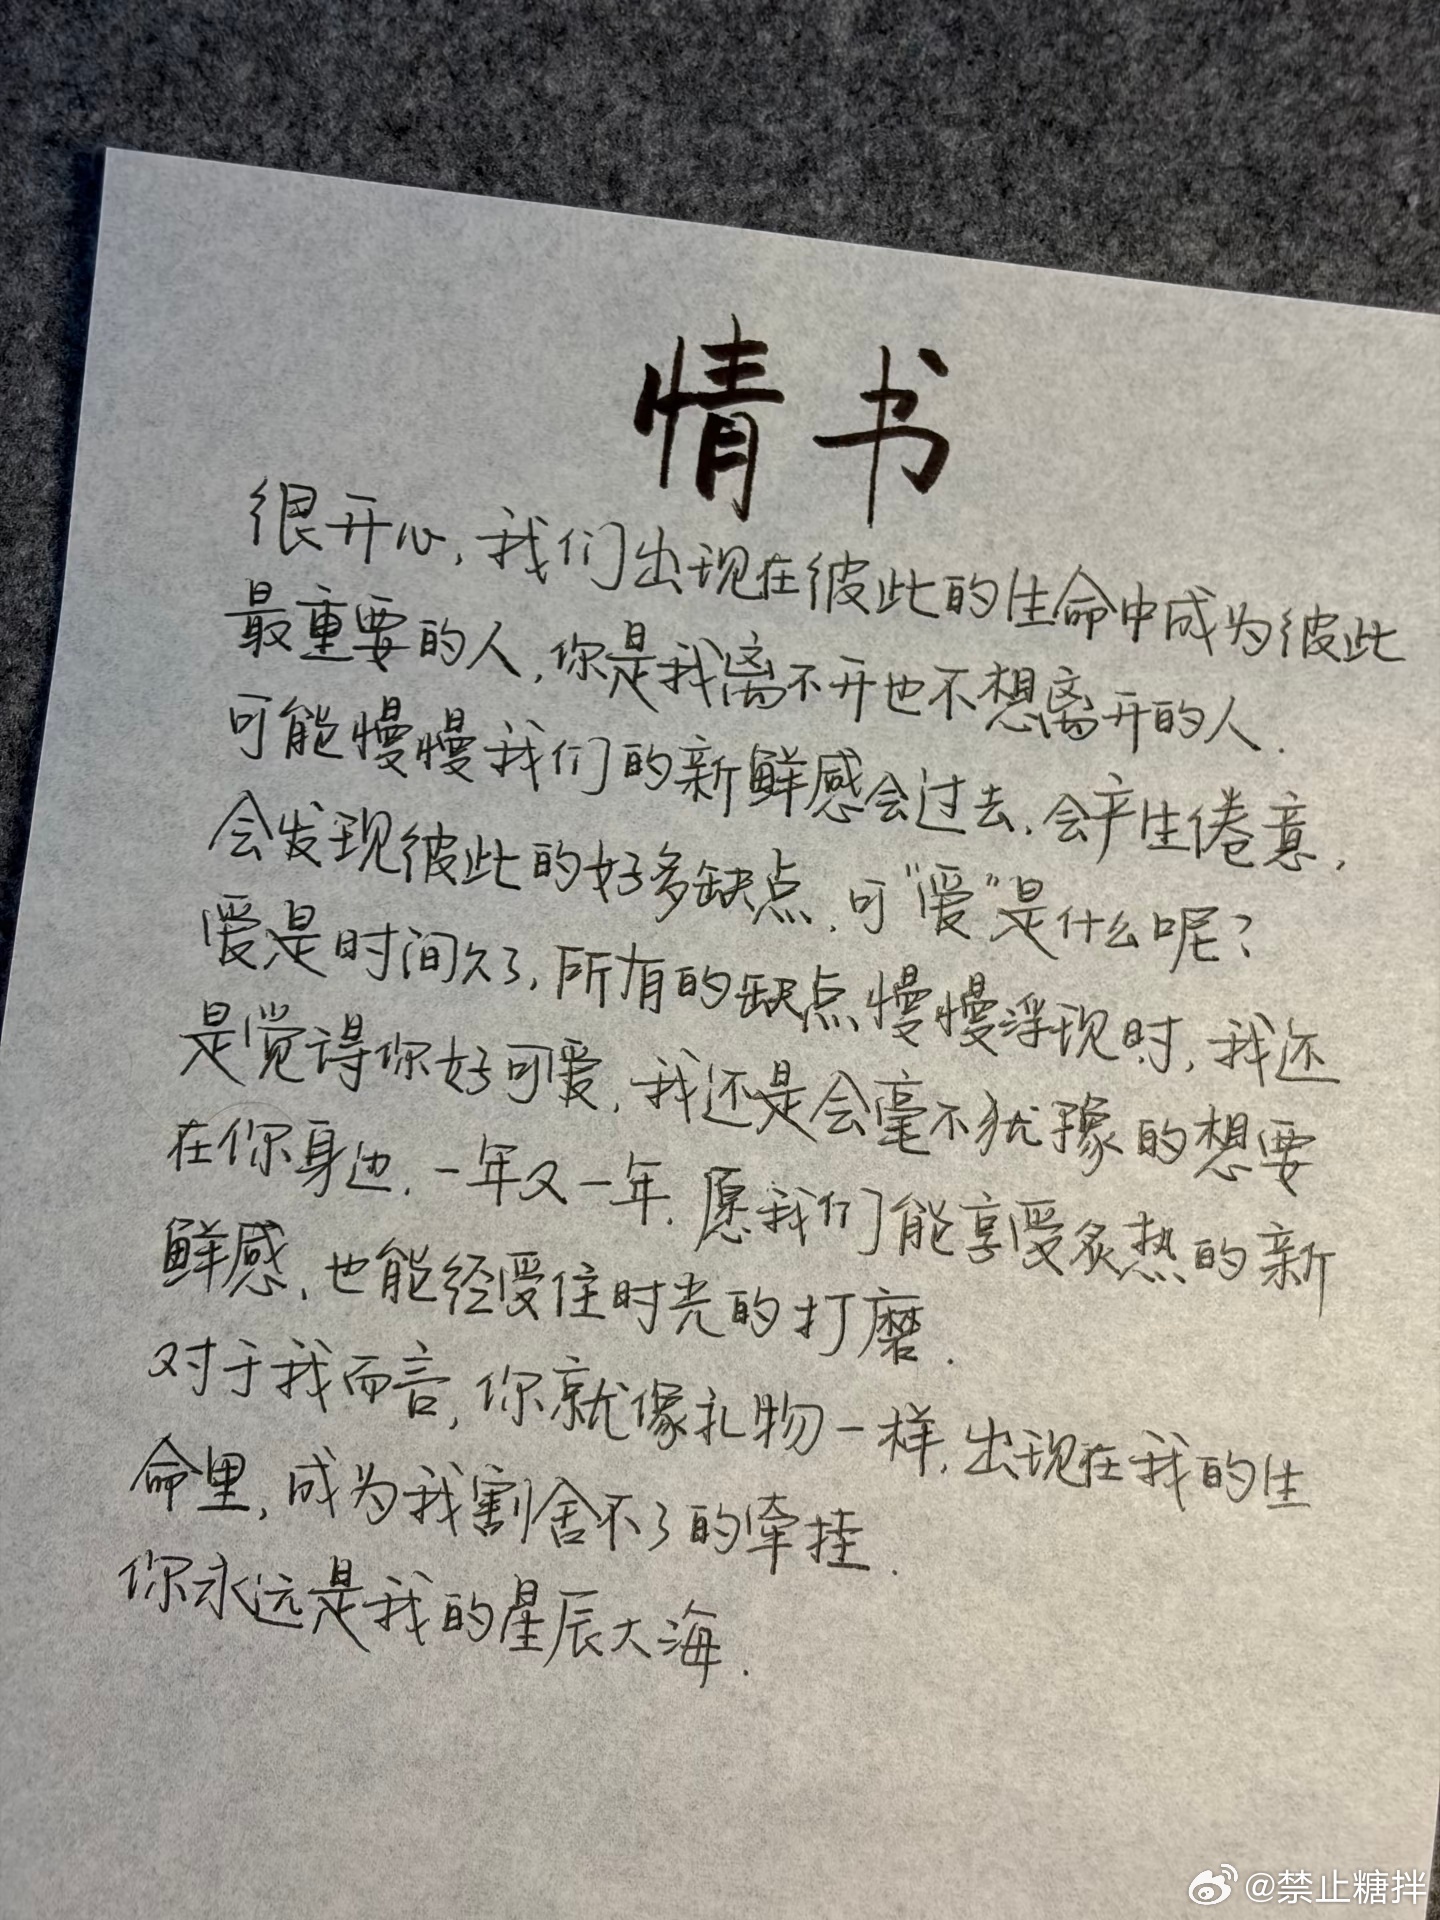 情书
很开心，我们出现在彼此的生命中成为彼此
最重要的人，你是我离不开也不想离开的人.
可能慢慢我们的新鲜感会过去，会产生倦意，
会发现彼此的好多缺点，可“爱”是什么呢？
爱是时间久了，所有的缺点慢慢浮现时，我还
是觉得你好可爱，我还是会毫不犹豫的想要
在你身边，一年又一年. 愿我们能享受炙热的新
鲜感，也能经受住时光的打磨.
对于我而言，你就像礼物一样，出现在我的生
命里，成为我割舍不了的牵挂.
你永远是我的星辰大海.
@禁止糖拌